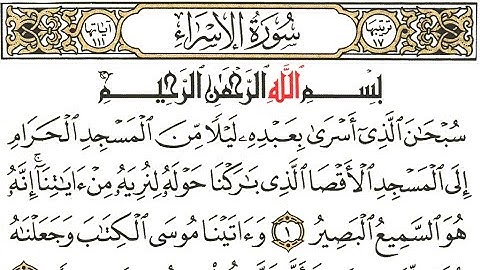 ترتيبها ١٧ سُورَةُ الإِسْرَاءِ آياتها ١١١
بِسْمِ ٱللَّهِ ٱلرَّحْمَٰنِ ٱلرَّحِيمِ
سُبْحَٰنَ ٱلَّذِىٓ أَسْرَىٰ بِعَبْدِهِۦ لَيْلًا مِّنَ ٱلْمَسْجِدِ ٱلْحَرَامِ
إِلَى ٱلْمَسْجِدِ ٱلْأَقْصَا ٱلَّذِى بَٰرَكْنَا حَوْلَهُۥ لِنُرِيَهُۥ مِنْ ءَايَٰتِنَآ ۚ إِنَّهُۥ
هُوَ ٱلسَّمِيعُ ٱلْبَصِيرُ ١ وَءَاتَيْنَا مُوسَى ٱلْكِتَٰبَ وَجَعَلْنَٰهُ